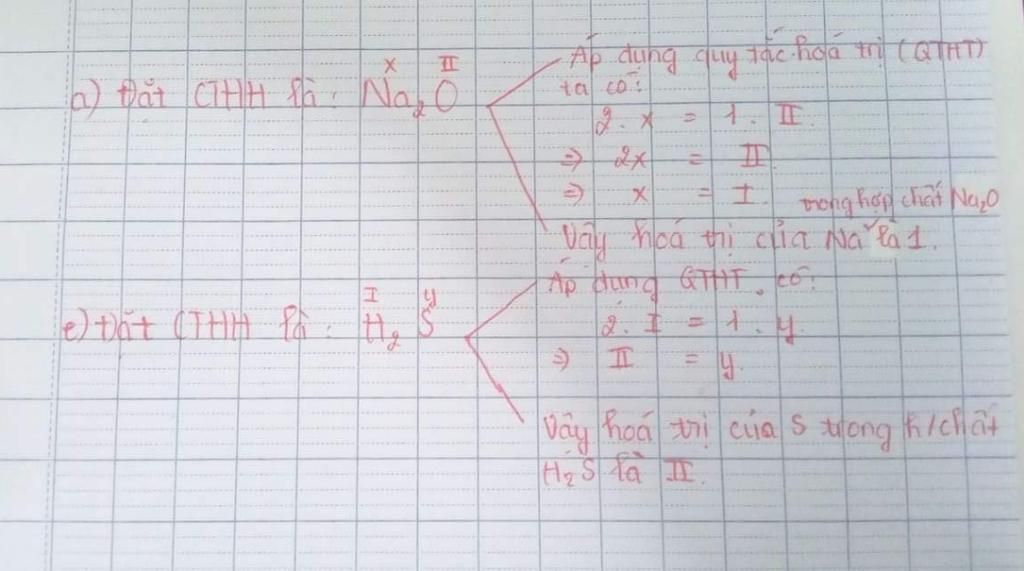 a) Đặt CTHH là: Na₂O
x II
Áp dụng quy tắc hoá trị (QTHT)
ta có:
2. x = 1. II
=> 2x = II
=> x = I.
trong hợp chất Na₂O
Vậy hoá trị của Na là 1.
e) Đặt CTHH là: H₂S
I y
Áp dụng QTHT, có:
2. I = 1. y
=> II = y.
Vậy hoá trị của S trong h/chất
H₂S là II.